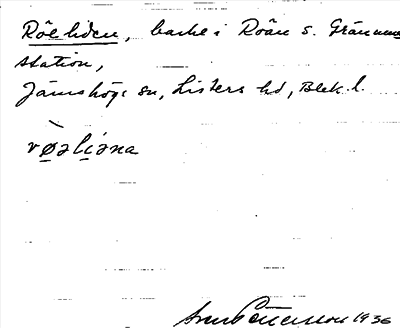 Röeliden, backe i Roån s. Gränums
station,
Jämshögs sn, Listers hd, Blek. l.
vøəliəna
1936